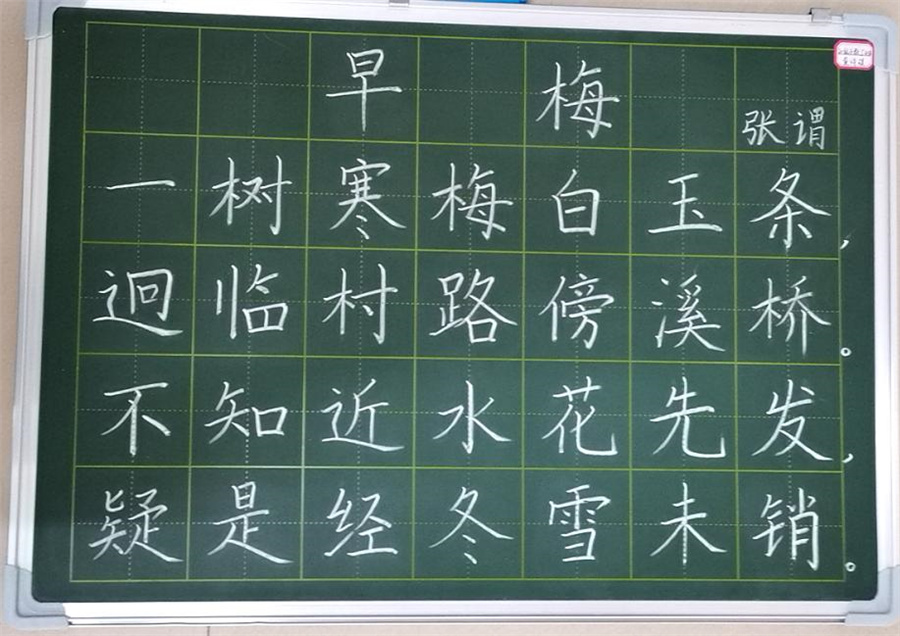 早梅
张谓
一树寒梅白玉条，
迥临村路傍溪桥。
不知近水花先发，
疑是经冬雪未销。